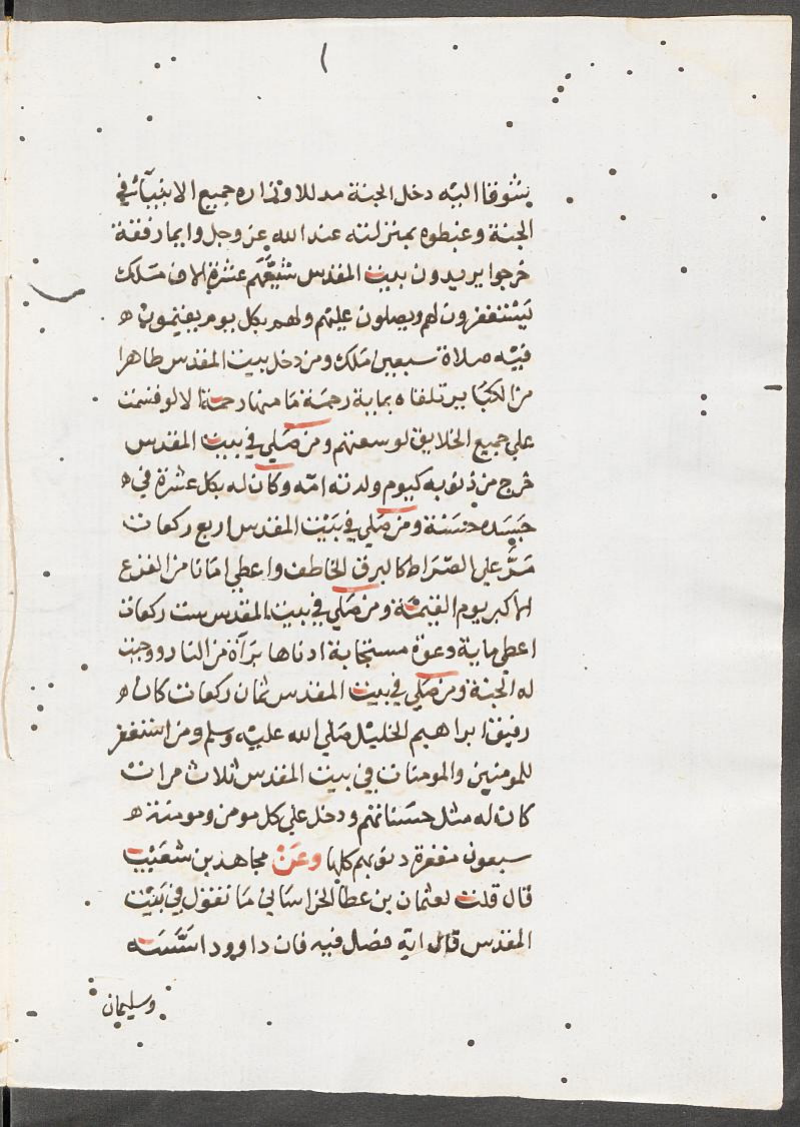 يشوقا اليه دخل الجنة مدللا وزاره جميع الانبيآء في
الجنة وغبطوه بمنزلته عند الله عز وجل وايما رفقة
خرجوا يريدون بيت المقدس شيعهم عشرة الاف ملك
يستغفرون لهم ويصلون عليهم ولهم بكل يوم يقيمون ه
فيه صلاة سبعين ملك ومن دخل بيت المقدس طاهرا
من الكباير تلقاه بماية رحمة ما منها رحمة الا لو قسمت
علي جميع الخلايق لوسعتهم ومن صلي في بيت المقدس
خرج من ذنوبه كيوم ولدته امه وكان له بكل عشرة في ه
جسده حسنة ومن صلي في بيت المقدس اربع ركعات
مر علي الصراط كالبرق الخاطف واعطي امانا من الفزع
الاكبر يوم القيمة ومن صلي في بيت المقدس ست ركعات
اعطي ماية دعوة مستجابة ادناها برآة من النار ووجبت
له الجنة ومن صلي في بيت المقدس ثمان ركعات كان ه
رفيق ابراهيم الخليل صلي الله عليه وسلم ومن استغفر
للمومنين والمومنات في بيت المقدس ثلاث مرات
كان له مثل حسناتهم ودخل علي كل مومن ومومنة ه
سبعون مغفرة ذنوبهم كلها وعن مجاهد بن شعيب
قال قلت لعثمان بن عطا الخراساني ما تقول في بيت
المقدس قال ايه فضل فيه فان داوود اسسه
وسليمان